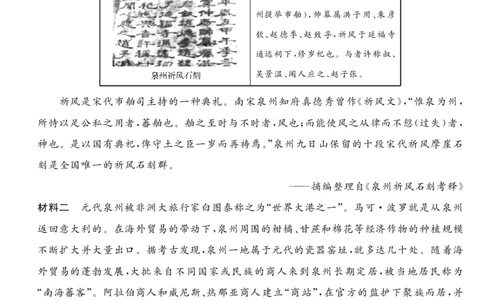 州提举市舶），帅幕属洪子用、朱彦
钦、赵德季、赵致孚，祈风于延福寺
通远祠下，修岁祀也。与者许称叔、
吴景温、闻人应之、赵子张。
泉州祈风石刻
祈风是宋代市舶司主持的一种典礼。南宋泉州知府真德秀曾作《祈风文》，“惟泉为州，
所恃以足公私之用者，蕃舶也。舶之至时与不时者，风也；而能使风之从律而不愆（过失）者，
神也。是以国有典祀，俾守土之臣一岁而再祷焉。”泉州九日山保留的十段宋代祈风摩崖石
刻是全国唯一的祈风石刻群。
——摘编整理自《泉州祈风石刻考释》
材料二 元代泉州被非洲大旅行家白图泰称之为“世界大港之一”。马可·波罗就是从泉州
返回意大利的。在海外贸易的带动下，泉州周围的柑橘、甘蔗和棉花等经济作物的种植规模
不断扩大并大量出口。据考古发现，泉州一地属于元代的瓷器窑址，就多达几十处。随着海
外贸易的蓬勃发展，大批来自不同国家或民族的商人来到泉州长期定居，被当地居民称为
“南海蕃客”。阿拉伯商人和威尼斯、热那亚商人建立“商站”，在官方的监护下聚族而居，并